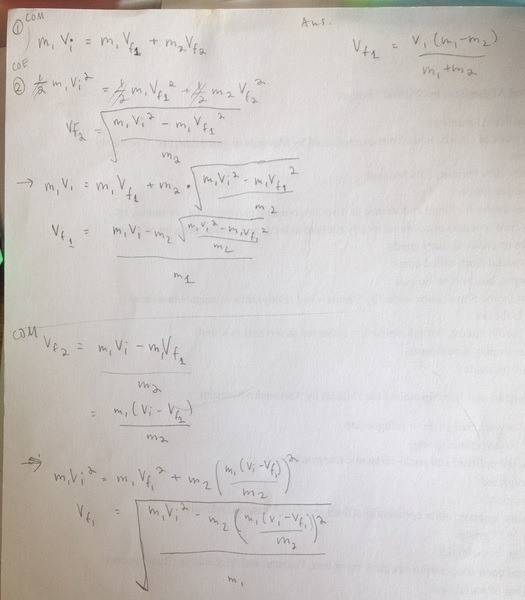 ① COM
m₁ Vᵢ = m₁ V_f1 + m₂ V_f2
Ans.
V_f1 = V₁ (m₁-m₂) / m₁+m₂
COE
② 1/2 m₁ Vᵢ² = 1/2 m₁ V_f1² + 1/2 m₂ V_f2²
V_f2 = √(m₁ Vᵢ² - m₁ V_f1² / m₂)
→ m₁ Vᵢ = m₁ V_f1 + m₂ · √(m₁ Vᵢ² - m₁ V_f1² / m₂)
V_f1 = m₁ Vᵢ - m₂ √(m₁ Vᵢ² - m₁ V_f1² / m₂) / m₁
COM V_f2 = m₁ Vᵢ - m₁ V_f1 / m₂
= m₁ (Vᵢ - V_f1) / m₂
→ m₁ Vᵢ² = m₁ V_f1² + m₂ (m₁ (Vᵢ - V_f1) / m₂)²
V_f1 = √(m₁ Vᵢ² - m₂ (m₁ (Vᵢ - V_f1) / m₂)² / m₁)